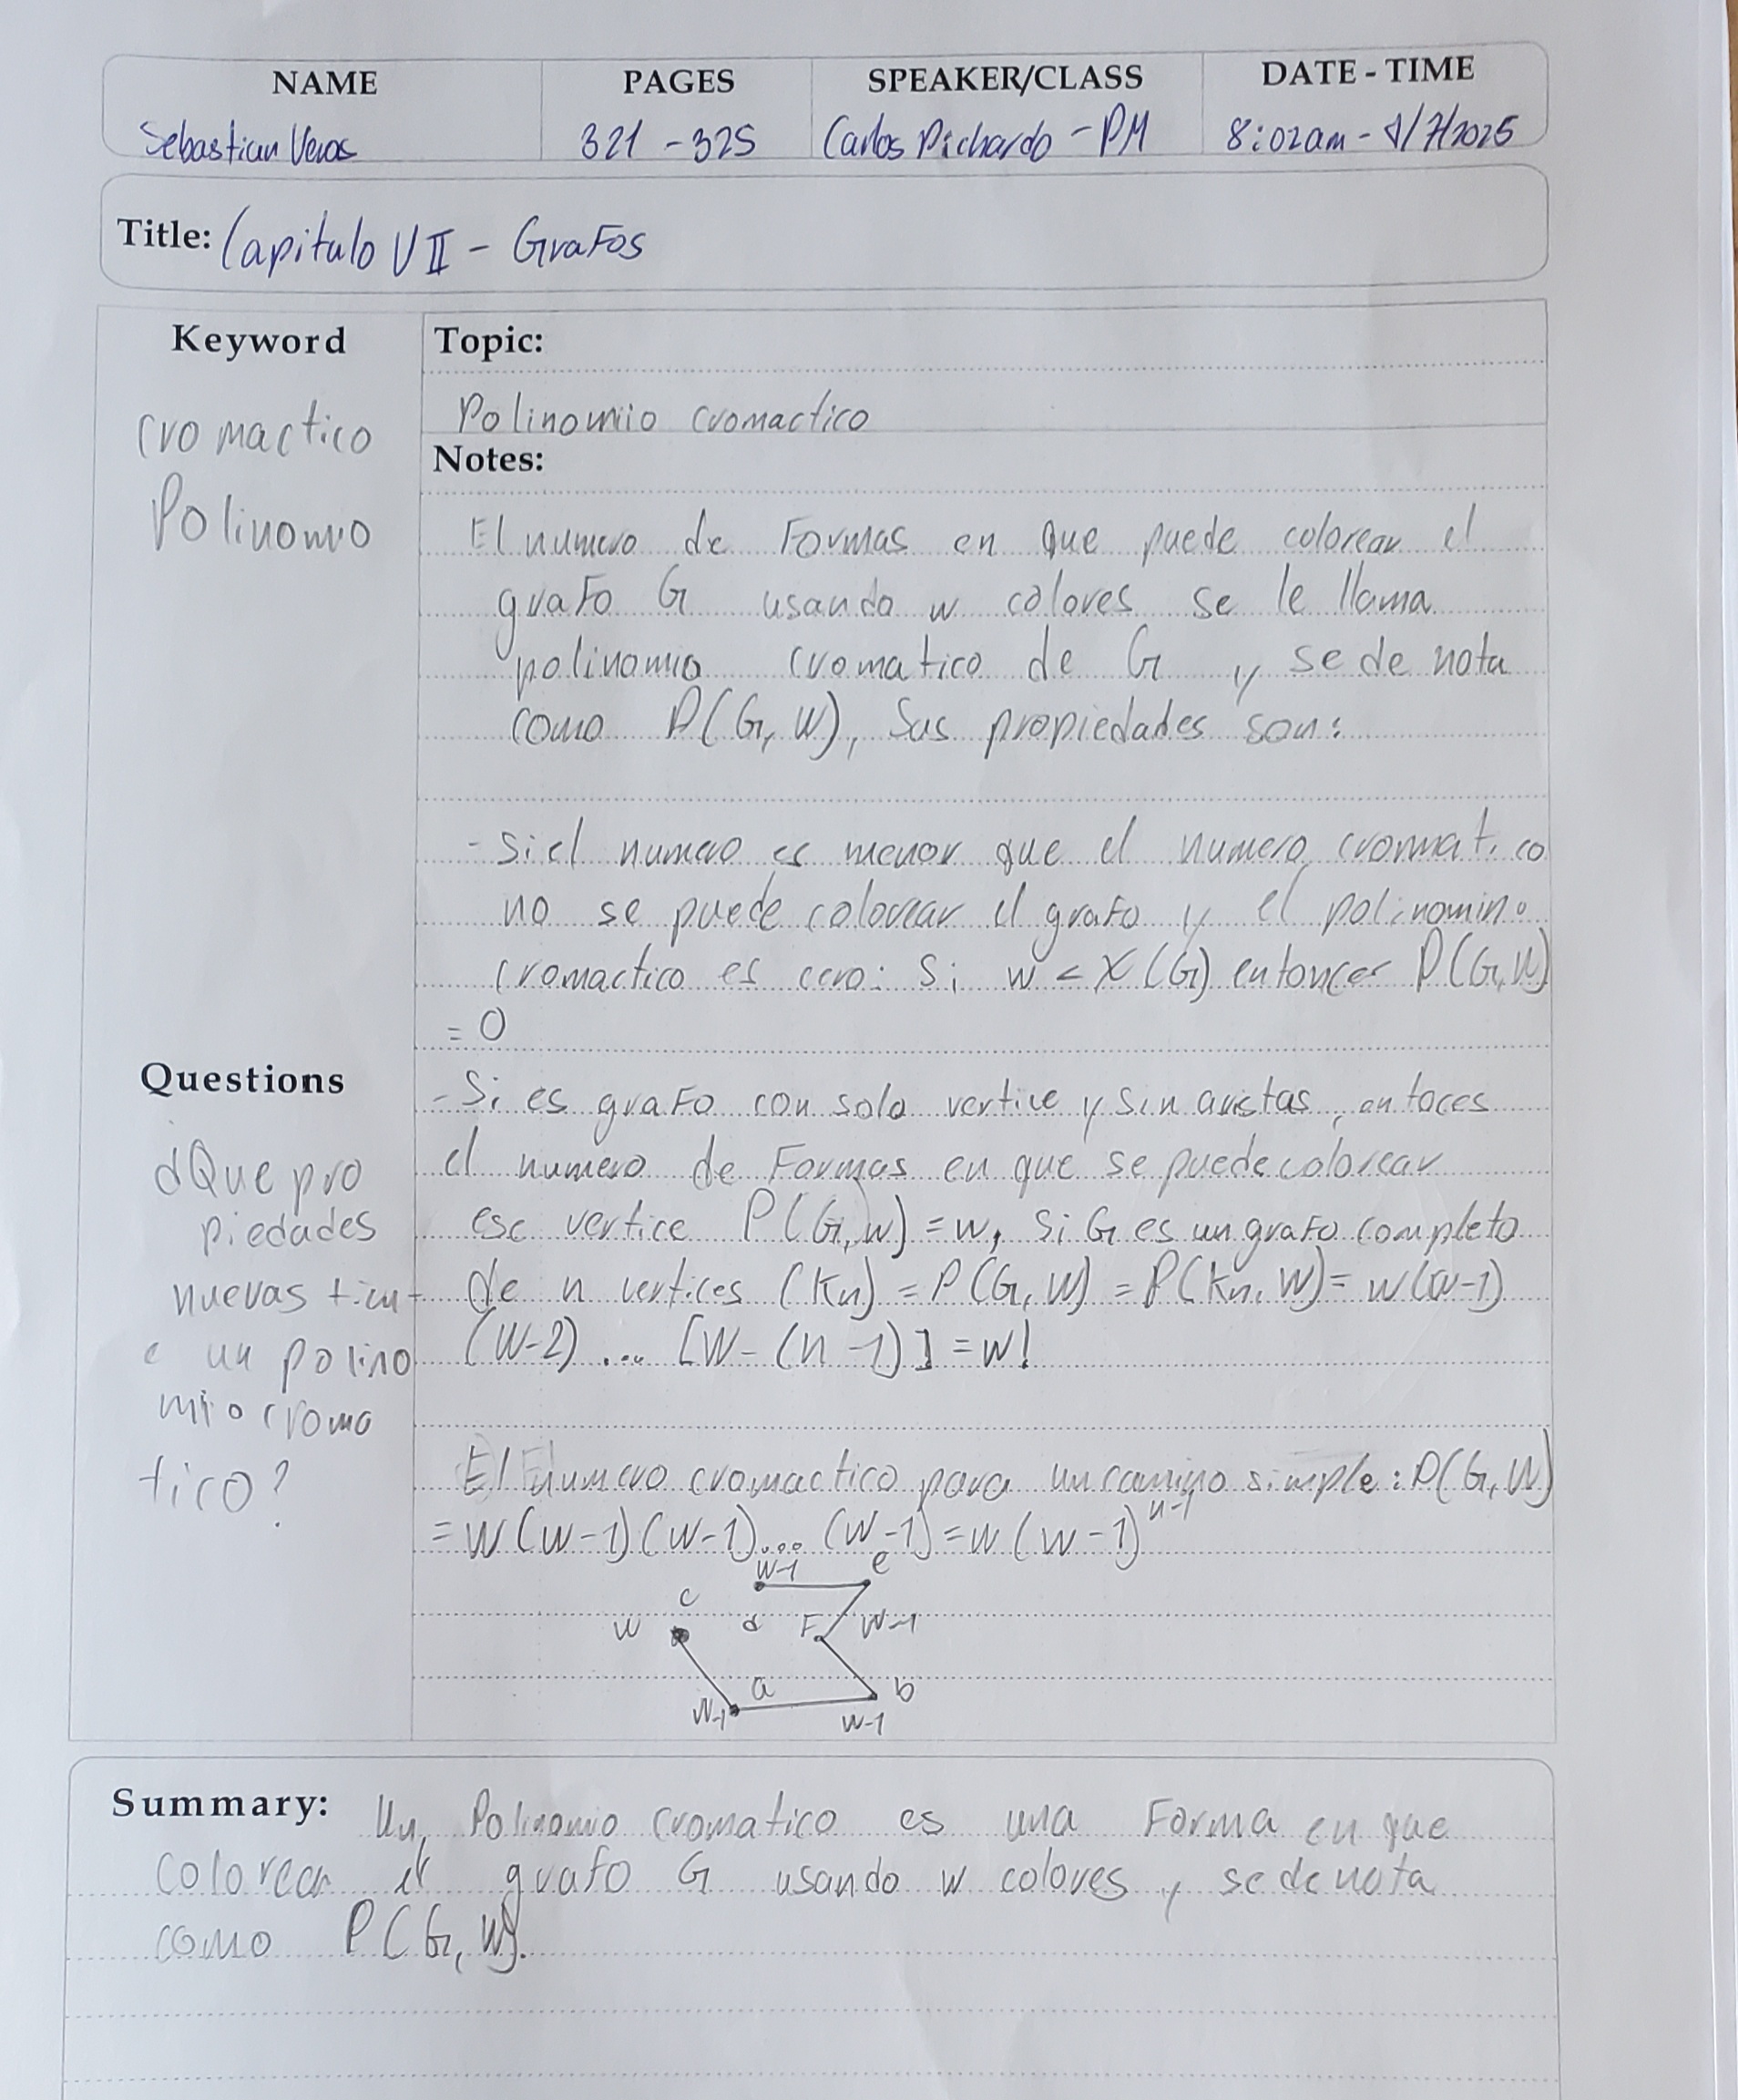 NAME PAGES SPEAKER/CLASS DATE - TIME
Sebastian Veras 321 - 325 Carlos Pichardo - PM 8:02am - /7/2025
Title: Capitulo VII - Grafos
Keyword
cromactico
Polinomio
Topic:
Polinomio cromactico
Notes:
El numero de Formas en que puede colorear el
grafo G usando w colores se le llama
polinomio cromatico de G y se denota
como P(G, W), Sus propiedades son:
- Si el numero es menor que el numero cromatico
no se puede colorear el grafo y el polinomino
cromactico es cero: Si w < X(G) entonces P(G,W)
= 0
- Si es grafo con solo vertice y sin aristas, entoces
el numero de Formas en que se puede colorear
ese vertice P(G,w) = w, si G es un grafo completo
de n vertices (Kn) = P(G, W) = P(Kn, W) = w(w-1)
(W-2) ... [W - (n - 1)] = w!
El numero cromactico para un camino simple: P(G, W)
= W(w-1)(w-1)... (w-1) = w(w-1)^n-1
w-1 e
c
w d F w-1
a b
w-1 w-1
Questions
¿Que pro
piedades
nuevas tien
e un polino
mio croma
tico?
Summary: Un Polinomio cromatico es una Forma en que
colorear el grafo G usando w colores y se denota
como P(G, W).